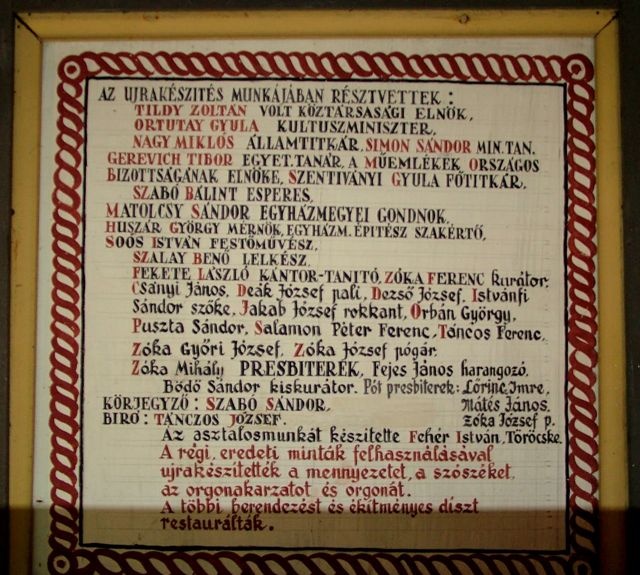 AZ UJRAKÉSZITÉS MUNKÁJÁBAN RÉSZTVETTEK :
TILDY ZOLTÁN VOLT KÖZTÁRSASÁGI ELNÖK,
ORTUTAY GYULA KULTUSZMINISZTER,
NAGY MIKLÓS ÁLLAMTITKÁR, SIMON SÁNDOR MIN. TAN.
GEREVICH TIBOR EGYET. TANÁR, A MŰEMLÉKEK ORSZÁGOS
BIZOTTSÁGÁNAK ELNÖKE, SZENTIVÁNYI GYULA FŐTITKÁR,
SZABÓ BÁLINT ESPERES,
MATOLCSY SÁNDOR EGYHÁZMEGYEI GONDNOK,
HUSZÁR GYÖRGY MÉRNÖK, EGYHÁZM. ÉPITÉSZ SZAKÉRTŐ,
SOÓS ISTVÁN FESTŐMŰVÉSZ,
SZALAY BENŐ LELKÉSZ,
FEKETE LÁSZLÓ KÁNTOR-TANITÓ, ZÓKA FERENC kurátor,
Csányi János, Deák József pali, Dezső József, Istvánfi
Sándor szőke, Jakab József rokkant, Orbán György,
Puszta Sándor, Salamon Péter Ferenc, Táncos Ferenc,
Zóka Győri József, Zóka József pógár,
Zóka Mihály PRESBITEREK, Fejes János harangozó,
Bödő Sándor kiskurátor. Pót presbiterek: Lőrinc Imre,
KÖRJEGYZŐ : SZABÓ SÁNDOR, Mátés János,
BIRÓ : TÁNCZOS JÓZSEF. Zóka József p.
Az asztalosmunkát készitette Fehér István, Töröcske.
A régi, eredeti minták felhasználásával
ujrakészitették a mennyezetet, a szószéket,
az orgonakarzatot és orgonát.
A többi berendezést és ékitményes diszt
restaurálták.